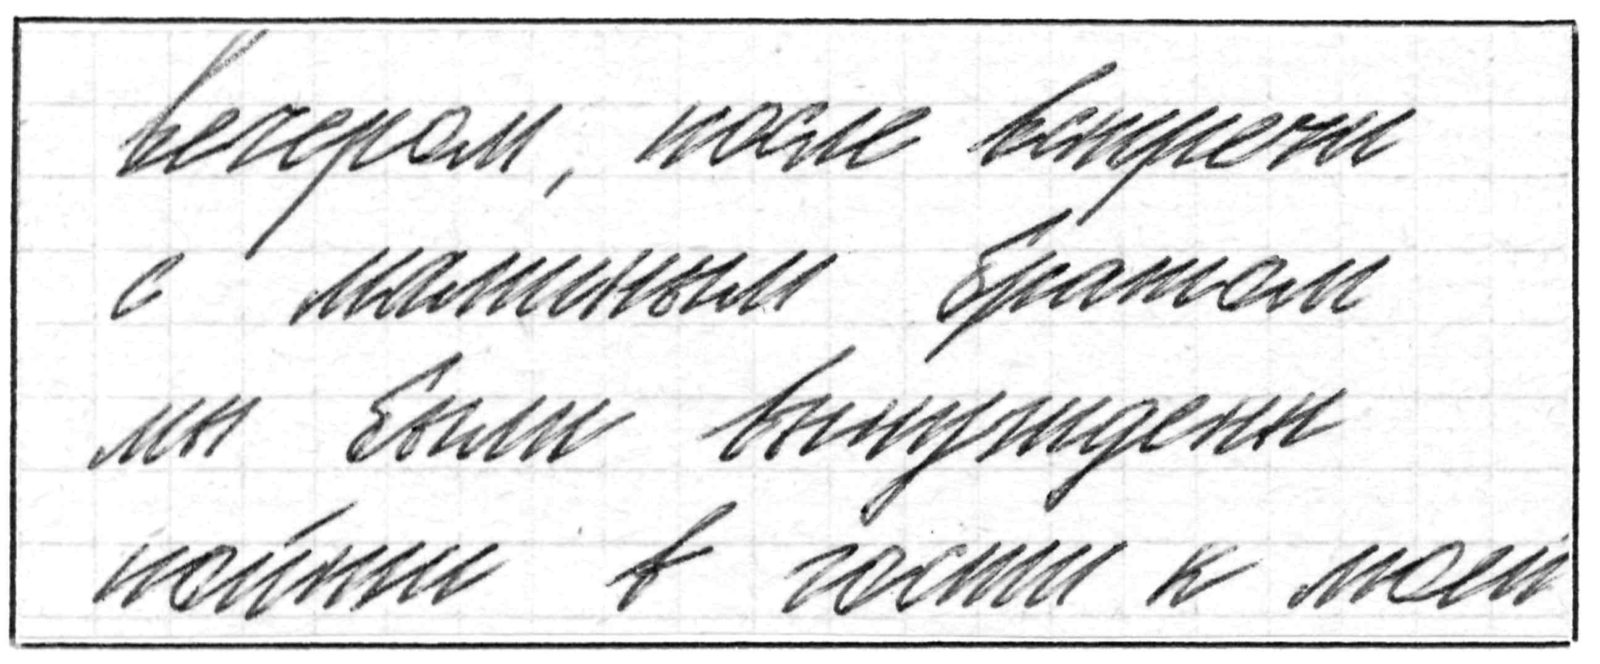 вечером, после встречи
с маминым братом
мы были вынуждены
пойти в гости к моей